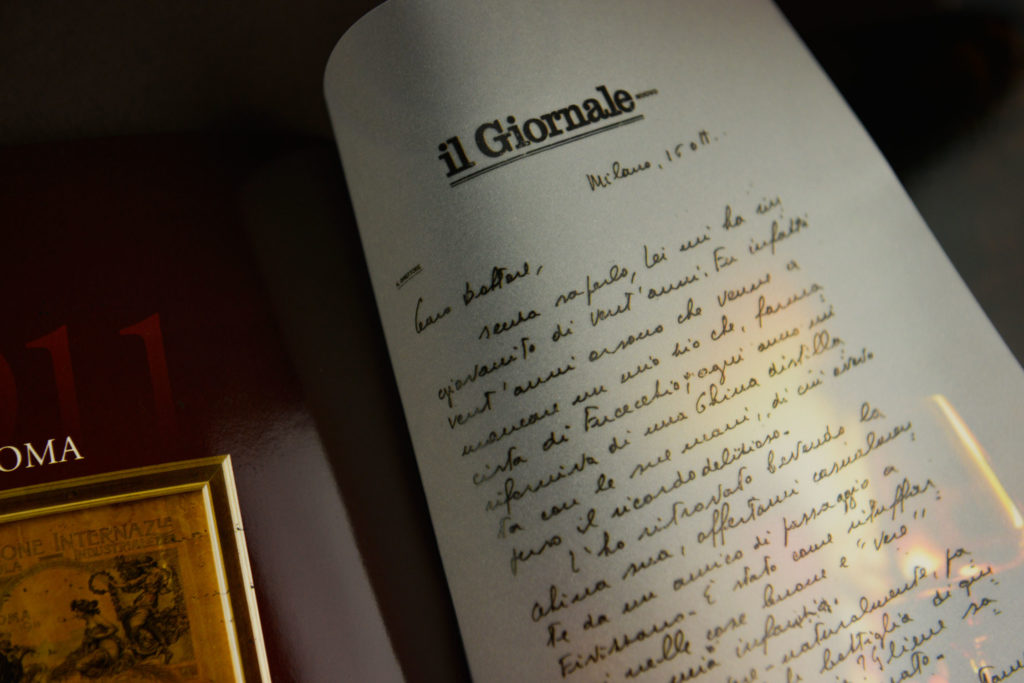 11
OMA
ONE INTERNAZ
INDUSTRIALE
ROMA
il Giornale
Milano, 15 ott.
IL DIRETTORE
Caro Dottore,
senza saperlo, Lei mi ha rin
giovanito di vent'anni. Fu infatti
vent'anni orsono che venne a
mancare un mio zio che, farma
cista di Fucecchio, ogni anno mi
riforniva di una China distilla
ta con le sue mani, di cui avevo
perso il ricordo delizioso.
L'ho ritrovato bevendo la
China sua, offertami casualmen
te da un amico di passaggio a
Fivizzano. È stato come rituffar
mi nelle cose buone e "vere"
mia infanzia.
naturalmente, fa
bottiglia di qui
Gliene sa